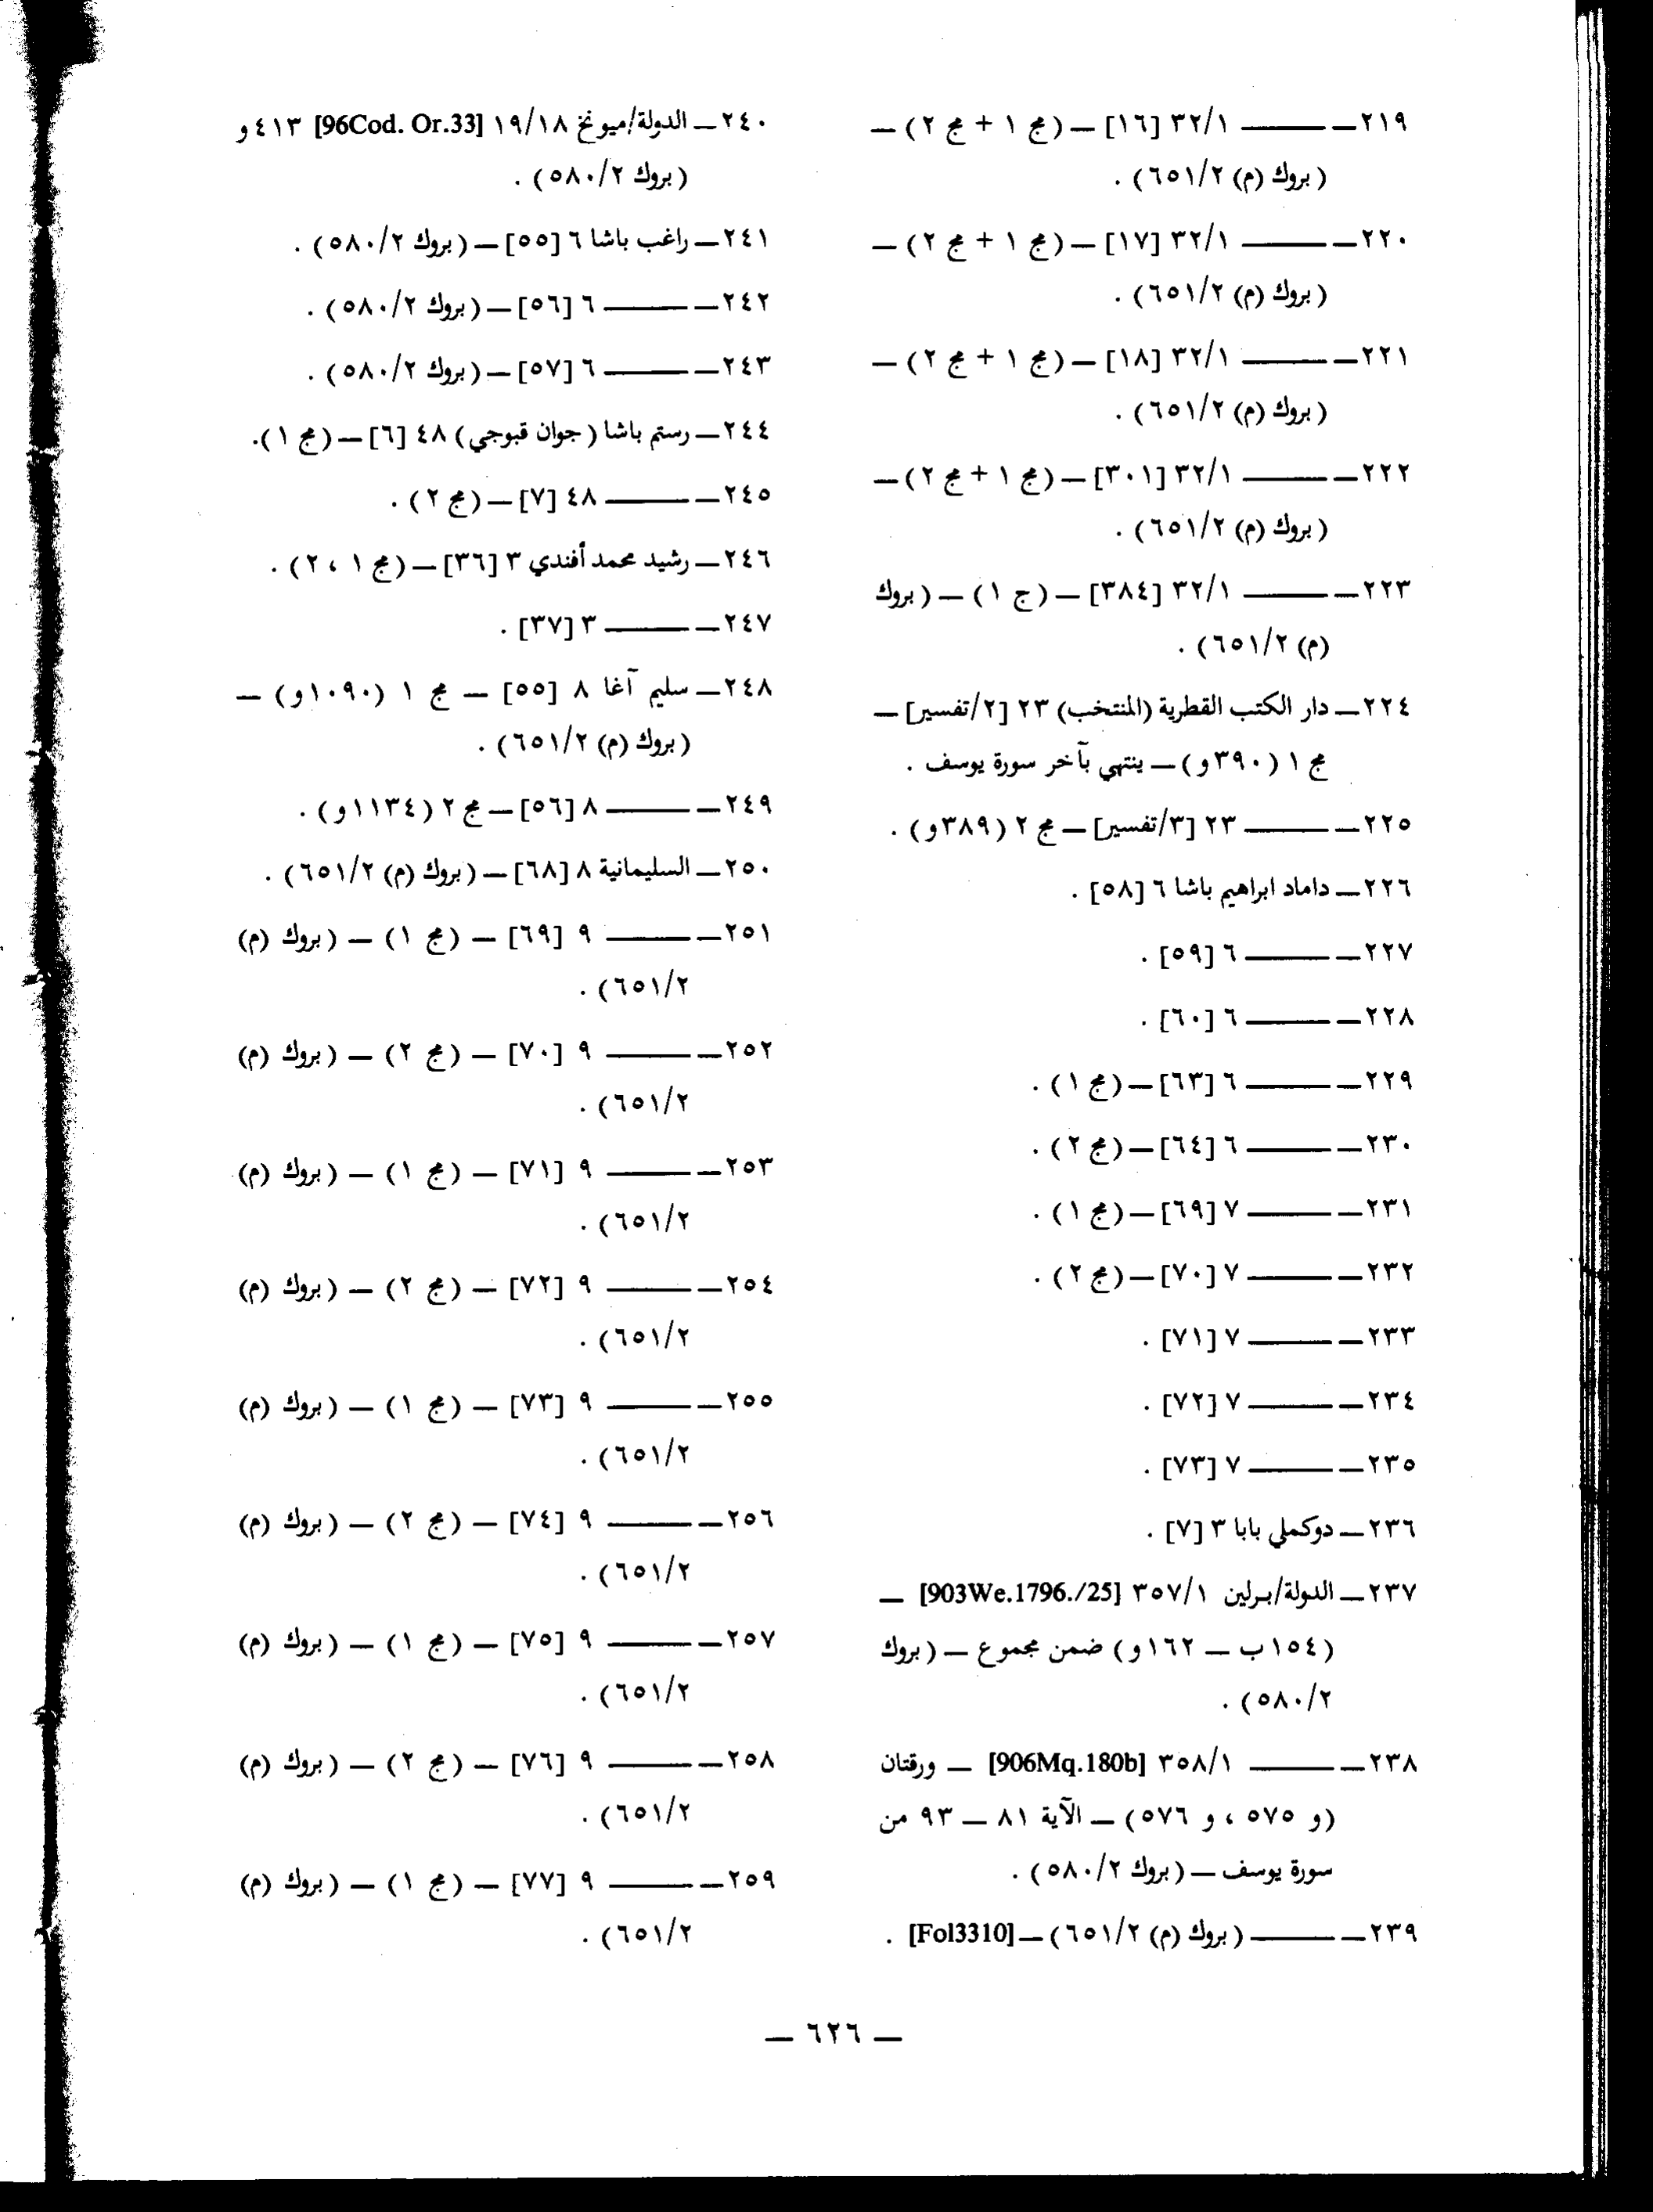 ٢١٩ــ ـــــــ ٣٢/١ [١٦] ــ (مج ١ + مج ٢) ــ
(بروك (م) ٦٥١/٢) .
٢٢٠ــ ـــــــ ٣٢/١ [١٧] ــ (مج ١ + مج ٢) ــ
(بروك (م) ٦٥١/٢) .
٢٢١ــ ـــــــ ٣٢/١ [١٨] ــ (مج ١ + مج ٢) ــ
(بروك (م) ٦٥١/٢) .
٢٢٢ــ ـــــــ ٣٢/١ [٣٠١] ــ (مج ١ + مج ٢) ــ
(بروك (م) ٦٥١/٢) .
٢٢٣ــ ـــــــ ٣٢/١ [٣٨٤] ــ (ج ١) ــ (بروك
(م) ٦٥١/٢) .
٢٢٤ــ دار الكتب القطرية (المنتخب) ٢٣ [٢/تفسير] ــ
مج ١ (٣٩٠و) ــ ينتهي بآخر سورة يوسف .
٢٢٥ــ ـــــــ ٢٣ [٣/تفسير] ــ مج ٢ (٣٨٩و) .
٢٢٦ــ داماد ابراهيم باشا ٦ [٥٨] .
٢٢٧ــ ـــــــ ٦ [٥٩] .
٢٢٨ــ ـــــــ ٦ [٦٠] .
٢٢٩ــ ـــــــ ٦ [٦٣] ــ (مج ١) .
٢٣٠ــ ـــــــ ٦ [٦٤] ــ (مج ٢) .
٢٣١ــ ـــــــ ٧ [٦٩] ــ (مج ١) .
٢٣٢ــ ـــــــ ٧ [٧٠] ــ (مج ٢) .
٢٣٣ــ ـــــــ ٧ [٧١] .
٢٣٤ــ ـــــــ ٧ [٧٢] .
٢٣٥ــ ـــــــ ٧ [٧٣] .
٢٣٦ــ دوكملي بابا ٣ [٧] .
٢٣٧ــ الدولة/برلين ٣٥٧/١ [903We.1796./25] ــ
(١٥٤ب ــ ١٦٢و) ضمن مجموع ــ (بروك
٥٨٠/٢) .
٢٣٨ــ ـــــــ ٣٥٨/١ [906Mq.180b] ــ ورقتان
(و ٥٧٥ ، و ٥٧٦) ــ الآية ٨١ ــ ٩٣ من
سورة يوسف ــ (بروك ٥٨٠/٢) .
٢٣٩ــ ـــــــ (بروك (م) ٦٥١/٢) ــ [Fol3310] .
٢٤٠ــ الدولة/ميونخ ١٩/١٨ [96Cod. Or.33] ٤١٣و
(بروك ٥٨٠/٢) .
٢٤١ــ راغب باشا ٦ [٥٥] ــ (بروك ٥٨٠/٢) .
٢٤٢ــ ـــــــ ٦ [٥٦] ــ (بروك ٥٨٠/٢) .
٢٤٣ــ ـــــــ ٦ [٥٧] ــ (بروك ٥٨٠/٢) .
٢٤٤ــ رستم باشا (جوان قبوجي) ٤٨ [٦] ــ (مج ١).
٢٤٥ــ ـــــــ ٤٨ [٧] ــ (مج ٢) .
٢٤٦ــ رشيد محمد أفندي ٣ [٣٦] ــ (مج ١ ، ٢) .
٢٤٧ــ ـــــــ ٣ [٣٧] .
٢٤٨ــ سليم آغا ٨ [٥٥] ــ مج ١ (١٠٩٠و) ــ
(بروك (م) ٦٥١/٢) .
٢٤٩ــ ـــــــ ٨ [٥٦] ــ مج ٢ (١١٣٤و) .
٢٥٠ــ السليمانية ٨ [٦٨] ــ (بروك (م) ٦٥١/٢) .
٢٥١ــ ـــــــ ٩ [٦٩] ــ (مج ١) ــ (بروك (م)
٦٥١/٢) .
٢٥٢ــ ـــــــ ٩ [٧٠] ــ (مج ٢) ــ (بروك (م)
٦٥١/٢) .
٢٥٣ــ ـــــــ ٩ [٧١] ــ (مج ١) ــ (بروك (م)
٦٥١/٢) .
٢٥٤ــ ـــــــ ٩ [٧٢] ــ (مج ٢) ــ (بروك (م)
٦٥١/٢) .
٢٥٥ــ ـــــــ ٩ [٧٣] ــ (مج ١) ــ (بروك (م)
٦٥١/٢) .
٢٥٦ــ ـــــــ ٩ [٧٤] ــ (مج ٢) ــ (بروك (م)
٦٥١/٢) .
٢٥٧ــ ـــــــ ٩ [٧٥] ــ (مج ١) ــ (بروك (م)
٦٥١/٢) .
٢٥٨ــ ـــــــ ٩ [٧٦] ــ (مج ٢) ــ (بروك (م)
٦٥١/٢) .
٢٥٩ــ ـــــــ ٩ [٧٧] ــ (مج ١) ــ (بروك (م)
٦٥١/٢) .
ــ ٦٢٦ ــ